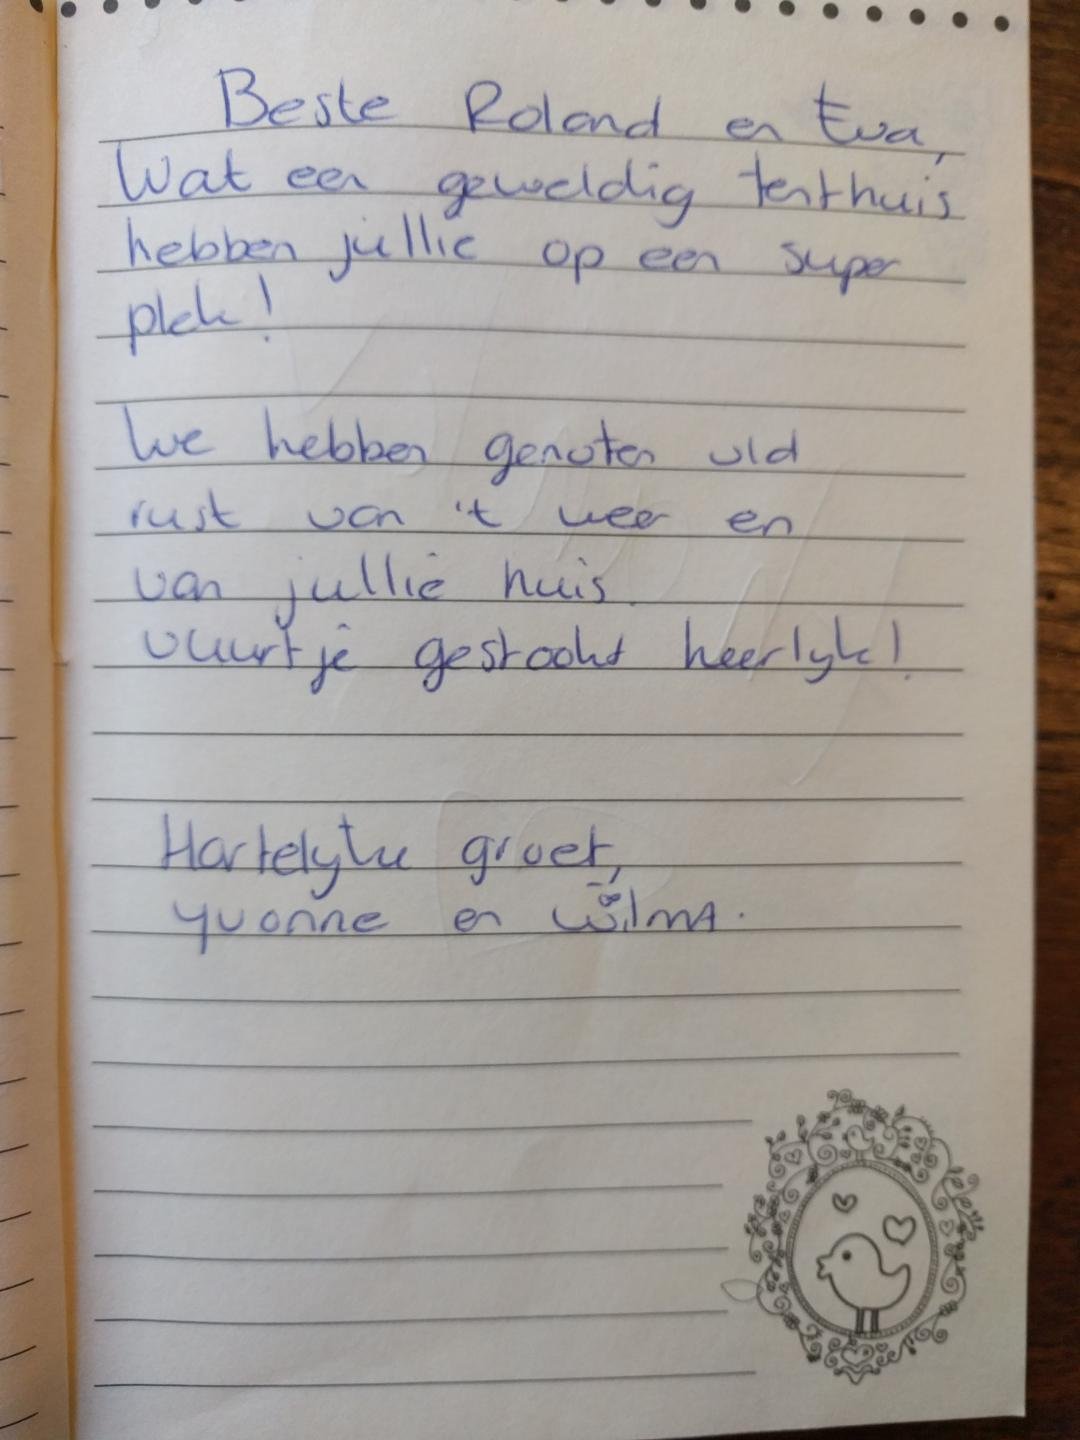 Beste Roland en Eva,
Wat een geweldig tenthuis
hebben jullie op een super
plek!
We hebben genoten vld
rust van 't weer en
van jullie huis.
vuurtje gestookt heerlyk!
Hartelyke groet,
Yvonne en Wilma.